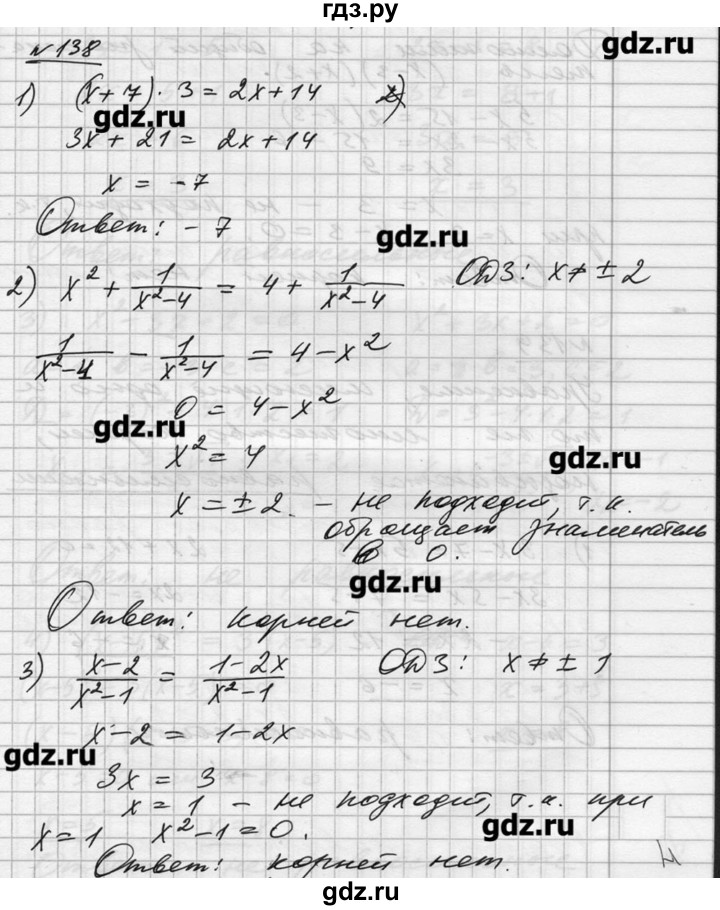 гдз.ру
№ 138
gdz.ru
1) (x+7) · 3 = 2x+14
gdz.ru
3x + 21 = 2x+14
x = -7
Ответ: -7
gdz.ru
2) x² + 1/(x²-4) = 4 + 1/(x²-4) ОДЗ: x ≠ ± 2
1/(x²-4) - 1/(x²-4) = 4 - x²
0 = 4 - x²
gdz.ru
x² = 4
gdz.ru
x = ± 2. - не подходит, т.к.
оброщает знаменатель
в 0.
gdz.ru
Ответ: корней нет.
3) (x-2)/(x²-1) = (1-2x)/(x²-1) ОДЗ: x ≠ ± 1
x - 2 = 1 - 2x
gdz.ru
3x = 3
x = 1 - не подходит, т.к. при
x = 1 x² - 1 = 0.
gdz.ru
Ответ: корней нет.
gdz.ru